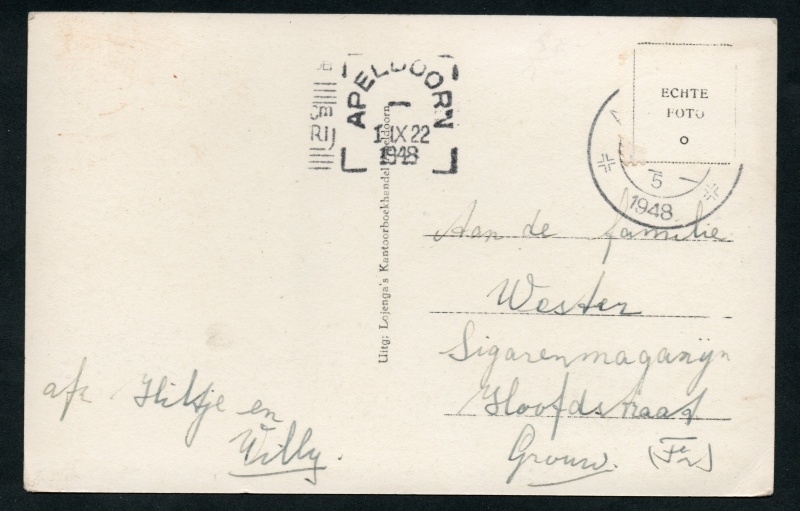 APELDOORN
1-IX 22
1948
RIJ
ECHTE
FOTO
5
1948
Uitg: Lojenga's Kantoorboekhandel Apeldoorn
Aan de familie
Wester
Sigarenmagazijn
Hoofdstraat
Grouw. (Fr)
afz Hiltje en
Willy.